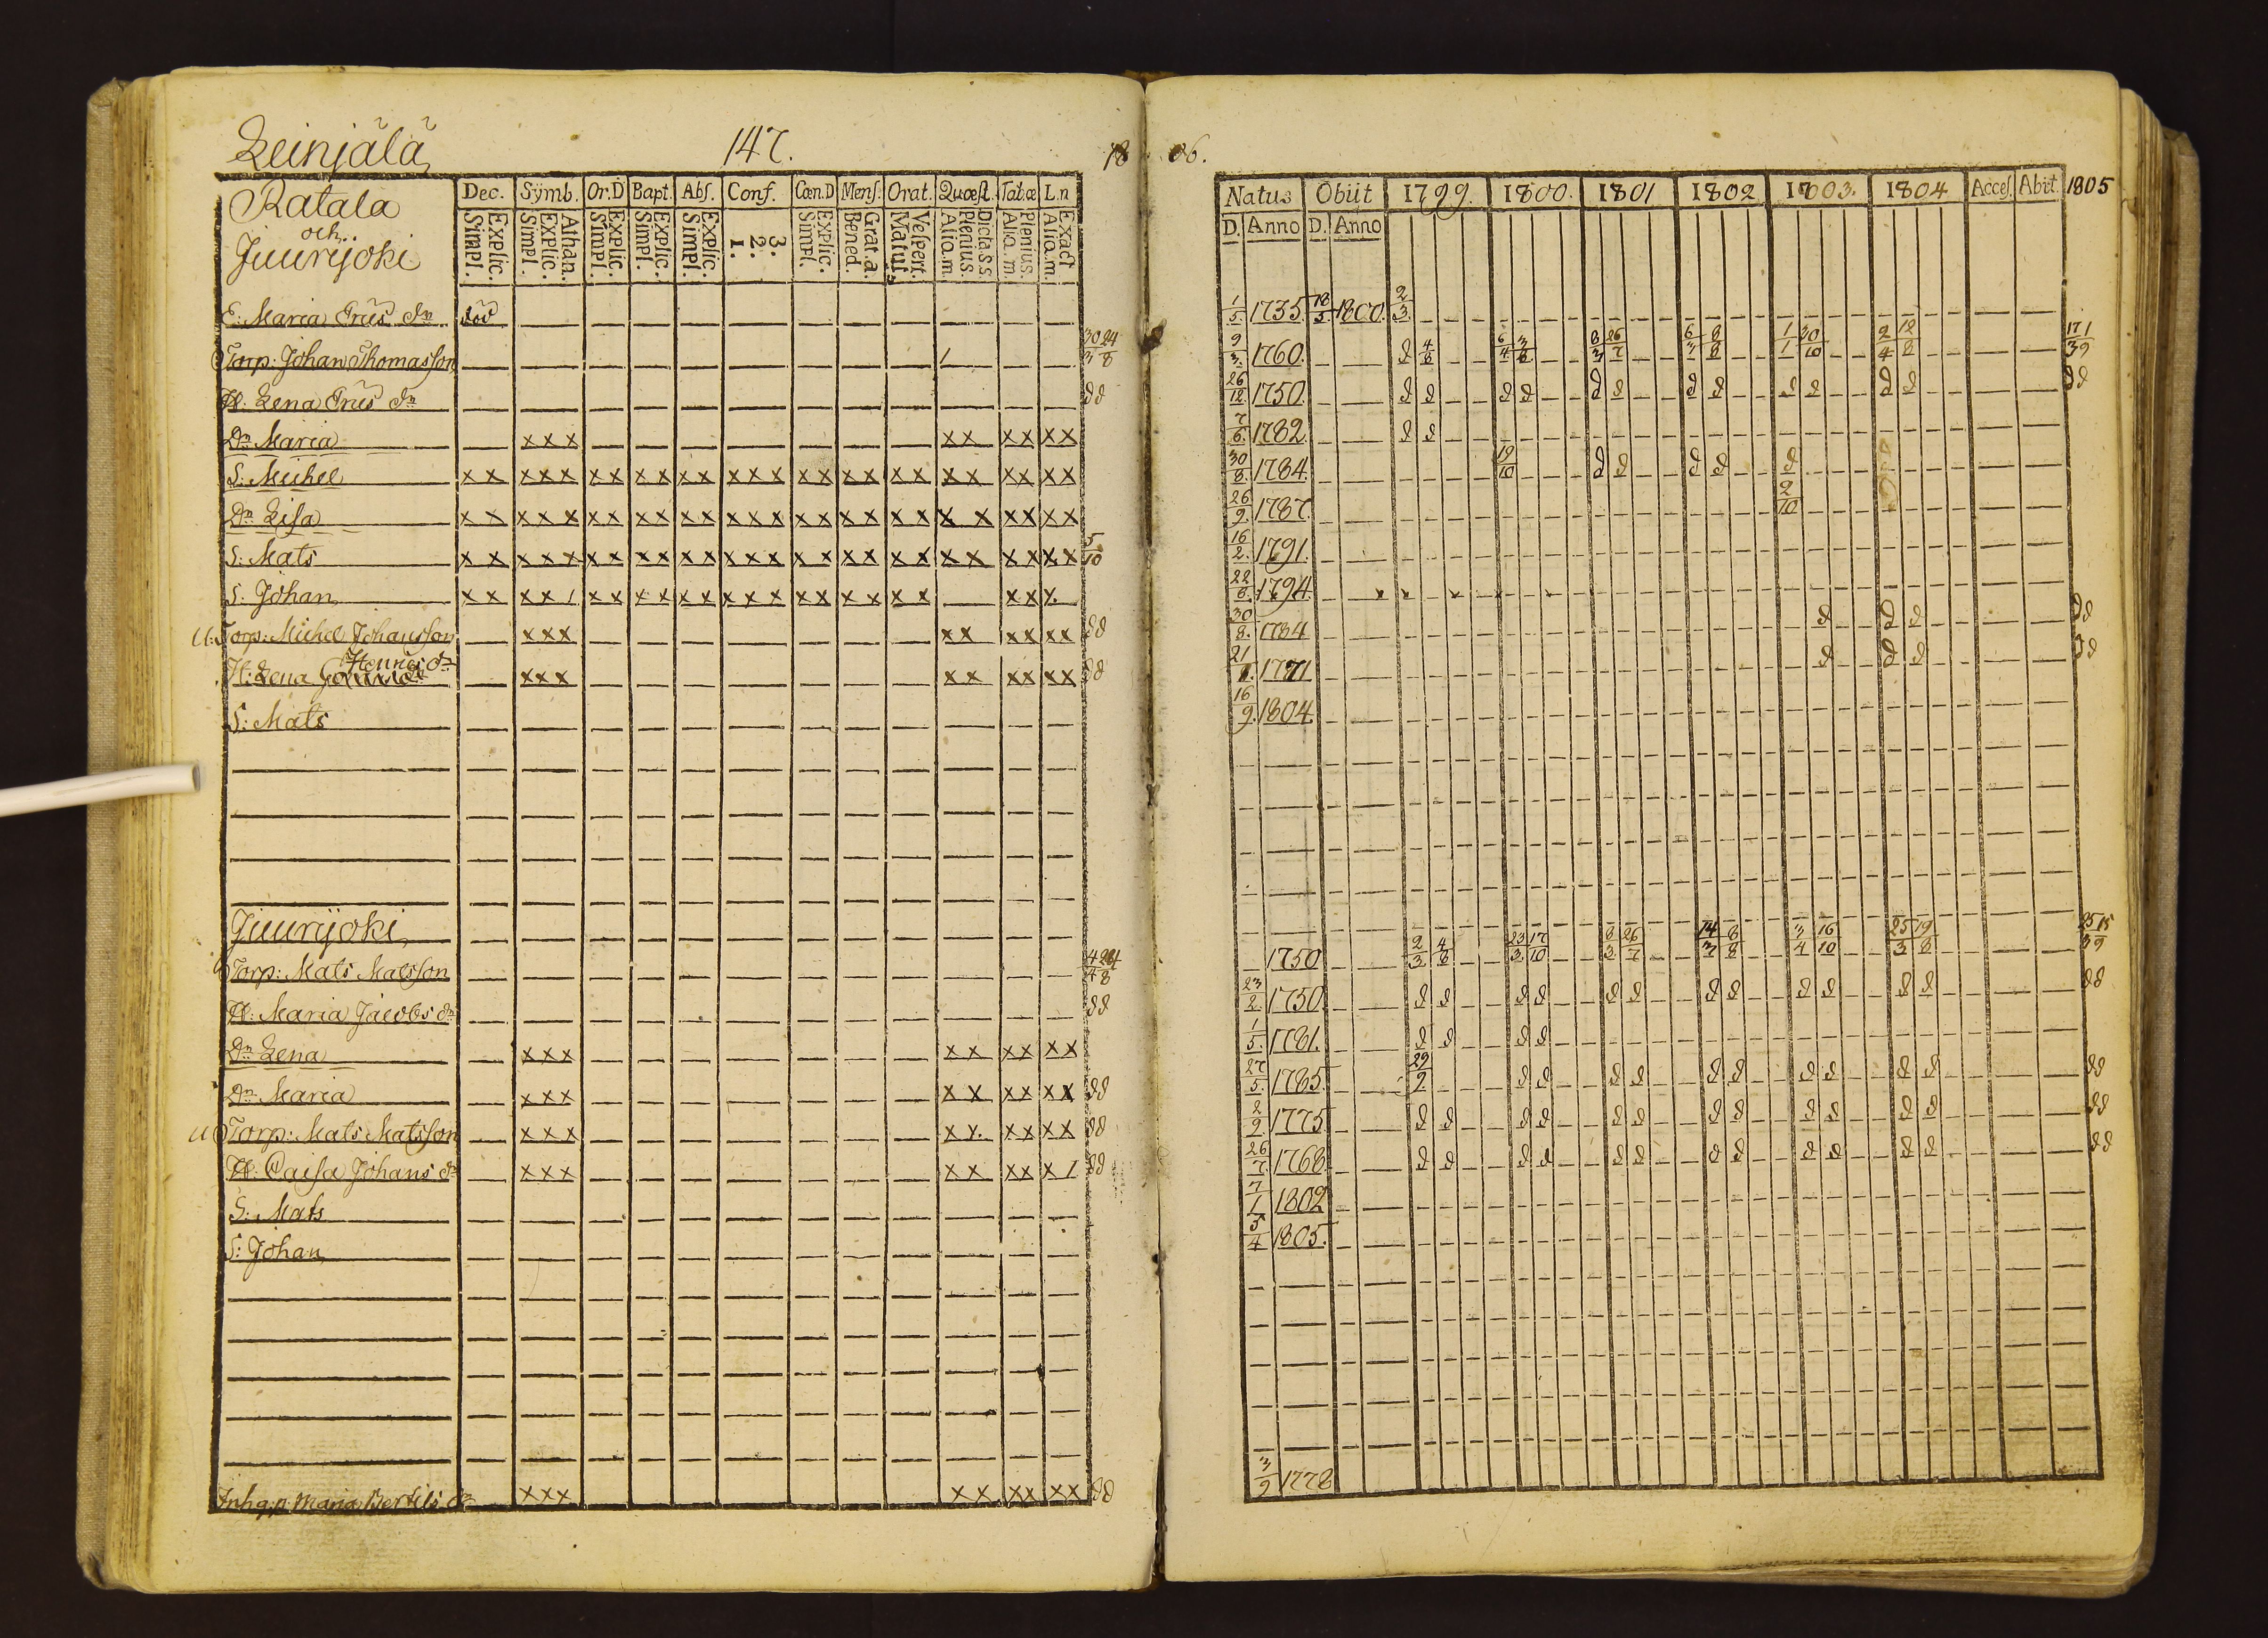 Leinjälä
147.
18 06.
Ratala
och
Juurijoki
Dec. Symb. Or.D Bapt. Abs. Conf. Cœn.D Mens. Orat. Quæst. Tabæ L.n
Explic. Simpl. Athan. Explic. Simpl. Explic. Simpl. Explic. Simpl. Explic. Simpl. 3. 2. 1. Explic. Simpl. Grat.a. Bened. Vespert. Matut. Dicta s.s. Plenius. Aliq.m. Plenius. Aliq.m. Exact Aliq.m.
Natus Obiit 1799. 1800. 1801 1802 1803. 1804 Acces. Abit. 1805
D. Anno D. Anno
E: Maria Eriks dr död 1/5 1735 18/5 1800 2/3
Torp: Johan Thomasson 30/3 24/8 9/3 1760 d 4/8 6/4 3/8 8/3 26/7 6/3 8/8 1/1 30/10 2/4 12/8 17/3 1/9
H: Lena Eriks dr d d 26/12 1750 d d d d d d d d d d d d d d
Dr Maria xxx xx xx xx 7/6 1782 d d
S: Michel xx xxx xx xx xx xxx xx xx xx xx xx xx 30/8 1784 19/10 d d d d d
Dr Lisa xx xxx xx xx xx xxx xx xx xx xx xx xx 26/9 1787 2/10
S: Mats xx xxx xx xx xx xxx xx xx xx xx xx xx 5/10 16/2 1791
S: Johan xx xx/ xx xx xx xxx xx xx xx xx x 22/8 1794
U: Torp: Michel Johansson xxx xx xx xx d d 30/8 1784 d d d d d
H: Lena Henrics dr xxx xx xx xx d d 21 1771 d d d d d
S: Mats 16/9 1804
Juurijoki
Torp: Mats Matsson 1750 2/3 4/8 23/3 17/10 8/3 26/7 14/3 8/8 3/4 16/10 25/3 19/8 25/3 15/9
H: Maria Jacobs dr d d 23/2 1750 d d d d d d d d d d d d d d
Dr Lena xxx xx xx xx 1/5 1781 d d d d
Dr Maria xxx xx xx xx d d 27/5 1785 29/9 d d d d d d d d d d d d
U Torp: Mats Matsson xxx xx xx xx d d 2/9 1775 d d d d d d d d d d d d d d
H: Caisa Johans dr xxx xx xx x/ d d 26/7 1768 d d d d d d d d d d d d d d
S: Mats 7/1 1802
S: Johan 5/4 1805
Inh q.p. Maria Bertils dr xxx xx xx xx d d 3/9 1778